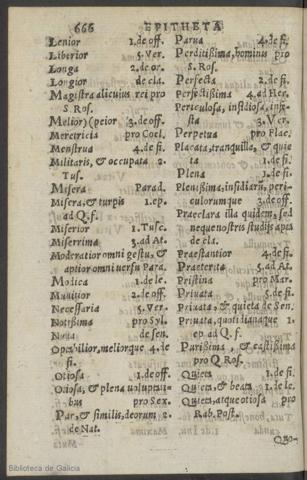 666 EPITHETA
Lenior 1. de off.
Liberior 5. Ver.
Longa 2. de or.
Longior de cla.
Magistra alicuius rei pro
S. Ros.
Melior) (peior 3. de off.
Meretricia pro Coel.
Menstrua 4. de fi.
Militaris, & occupata 2.
Tus.
Misera Parad.
Misera, & turpis 1. ep.
ad Q. f.
Miserior 1. Tusc.
Miserrima 5. ad At.
Moderatior omni gestu, &
aptior omni versu Para.
Modica 1. de le.
Munitior 2. de off.
Necessaria 5. Ver.
Notissima pro Syl.
Noua de sen.
Optabilior, meliorque 4. de
fi.
Otiosa 1. de off.
Otiosa, & plena voluptati-
bus pro Sex.
Par, & similis, deorum 2.
de Nat.
Parua 4. de fi.
Perditissima, hominis pro
S. Ros.
Perfecta 2. de fi.
Perfectissima 4. ad Her.
Periculosa, insidiosa, infe-
sta 3. Ver.
Perpetua pro Flac.
Placata, tranquilla, & quie
ta 1. de fi.
Plena 1. de fi.
Plenissima, insidiarū, peri-
culorumque 3. de off.
Praeclara illa quidem, sed
neque nostris studijs apta
de cla.
Praestantior 4. de fi.
Praeterita 5. ad At.
Pristina pro Mar.
Priuata 5. de fi.
Priuata, & quieta de Sen.
Priuata, quotidianaque 1.
ep. ad Q. f.
Purissima, & castissima
pro Q. Ros.
Quieta 1. de fi.
Quieta, & beata 1. de le.
Quieta, atque otiosa pro
Rab. Post.
Quo-
Biblioteca de Galicia